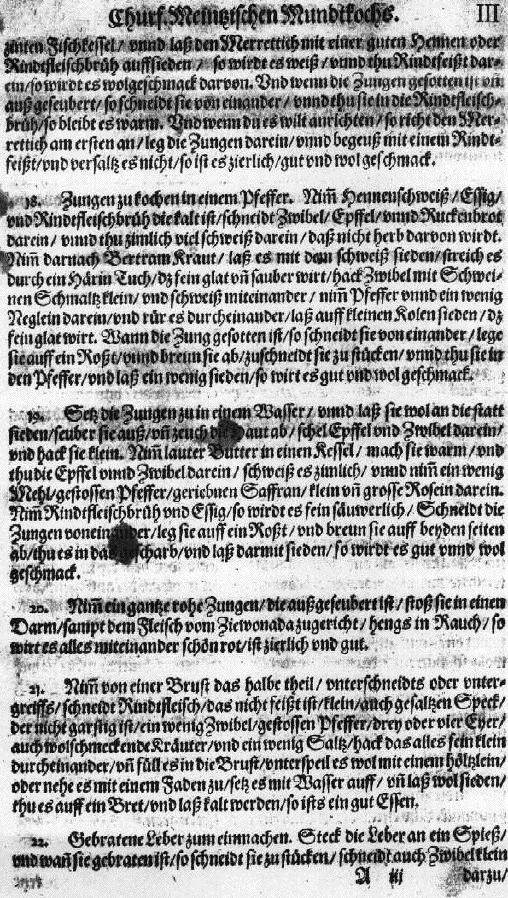 Churf. Meintzischen Mundtkochs. III
zinten Fischkessel/ vnnd laß den Merrettich mit einer guten Hennen oder
Rindtfleischbrüh auffsieden/ so wirdt es weiß/ vnnd thu Rindtfeißt dar-
ein/ so wirdt es wolgeschmack darvon. Vnd wenn die Zungen gesotten ist vnd
außgeseubert/ so schneidt sie von einander/ vnnd thu sie in die Rindtfleisch-
brüh/ so bleibt es warm. Vnd wenn du es wilt anrichten/ so richt den Mer-
rettich am ersten an/ leg die Zungen darein/ vnnd begeuß mit einem Rindt-
feißt/ vnd versaltz es nicht/ so ist es zierlich/ gut vnd wol geschmack.
18. Zungen zu kochen in einem Pfeffer. Nim̃ Hennenschweiß/ Essig/
vnd Rindtfleischbrüh die kalt ist/ schneidt Zwibel/ Epffel/ vnnd Ruckenbrot
darein/ vnnd thu zimlich viel schweiß darein/ daß nicht herb darvon wirdt.
Nim̃ darnach Bertram Kraut/ laß es mit dem schweiß sieden/ streich es
durch ein Härin Tuch/ dz fein glat vñ sauber wirt/ hack Zwibel mit Schwei-
nen Schmaltz klein/ vnd schweiß miteinander/ nim̃ Pfeffer vnnd ein wenig
Neglein darein/ vnd rür es durcheinander/ laß auff kleinen Kolen sieden/ dz
fein glat wirt. Wann die Zung gesotten ist/ so schneidt sie von einander/ lege
sie auff ein Roßt/ vnnd breun sie ab/ zuschneidt sie zu stücken/ vnnd thu sie in
den Pfeffer/ vnd laß ein wenig sieden/ so wirt es gut vnd wol geschmack.
19. Setz die Zungen zu in einem Wasser/ vnnd laß sie wol an die statt
sieden/ seuber sie auß/ vñ zeuch die Haut ab/ schel Epffel vnd Zwibel darein/
vnd hack sie klein. Nim̃ lauter Butter in einen Kessel/ mach sie warm/ vnd
thu die Epffel vnnd Zwibel darein/ schweiß es zimlich/ vnnd nim̃ ein wenig
Mehl/ gestossen Pfeffer/ geriebnen Saffran/ klein vñ grosse Rosein darein.
Nim̃ Rindtfleischbrüh vnd Essig/ so wirdt es fein säuwerlich/ Schneidt die
Zungen voneinander/ leg sie auff ein Roßt/ vnd breun sie auff beyden seiten
ab/ thu es in das gescharb/ vnd laß darmit sieden/ so wirdt es gut vnnd wol
geschmack.
20. Nim̃ ein gantze rohe Zungen/ die außgeseubert ist/ stoß sie in einen
Darm/ sampt dem Fleisch vom Ziewonada zugericht/ hengs in Rauch/ so
wirt es alles miteinander schön rot/ ist zierlich vnd gut.
21. Nim̃ von einer Brust das halbe theil/ vnterschneidts oder vnter-
greiffs/ schneidt Rindtfleisch/ das nicht feißt ist/ klein/ auch gesaltzen Speck/
der nicht garstig ist/ ein wenig Zwibel/ gestossen Pfeffer/ drey oder vier Eyer/
auch wolschmeckende Kräuter/ vnd ein wenig Saltz/ hack das alles fein klein
durcheinander/ vñ füll es in die Brust/ vnterspeil es wol mit einem höltzlein/
oder nehe es mit einem Faden zu/ setz es mit Wasser auff/ vñ laß wol sieden/
thu es auff ein Bret/ vnd laß kalt werden/ so ists ein gut Essen.
22. Gebratene Leber zum einmachen. Steck die Leber an ein Spieß/
vnd wañ sie gebraten ist/ so schneidt sie zu stücken/ schneidt auch Zwibel klein
A iij darzu/